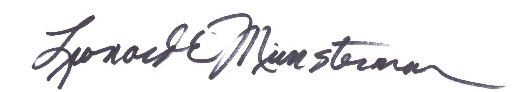 Leonard E Munsterman